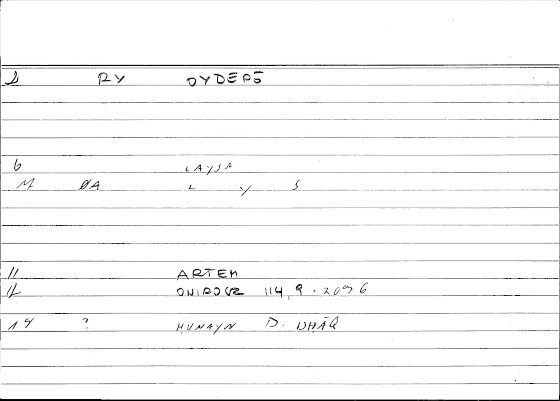 RY OYDEPŌ
6 LAYSA
M ØA L Y S
11 ARTEM
12 ONIROCR 114, 9 . 2096
14 ? HUNAYN D. ISHĀQ